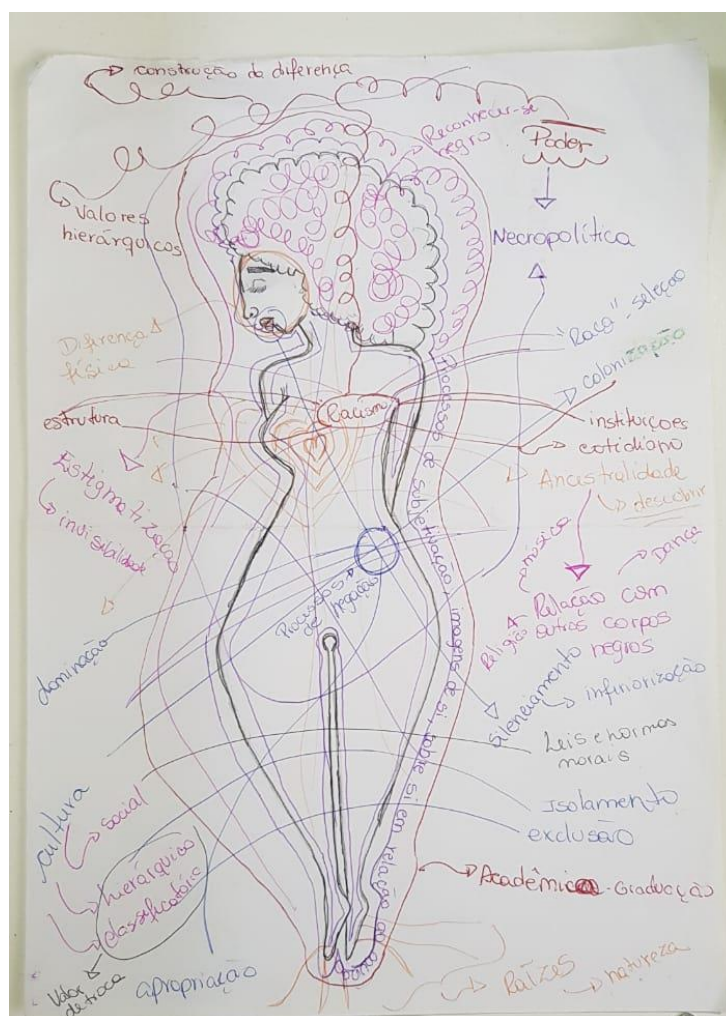 construção da diferença
Reconhecer-se
negro
Poder
Valores
hierárquicos
Necropolítica
"Raça" - seleção
colonização
Diferença
física
estrutura
Racism
instituições
cotidiano
Ancestralidade
descobrir
Estigmatização
invisibilidade
música
Dança
Relação com
outros corpos
negros
Religião
Processos
de negação
Processos de subjetivação, imagens de si, sobre si em relação ao outro
dominação
Silenciamento
inferiorização
Leis e normas
morais
Isolamento
exclusão
cultura
social
hierárquico
classificatório
Valor
de troca
apropriação
Acadêmico - Graduação
Raízes
natureza